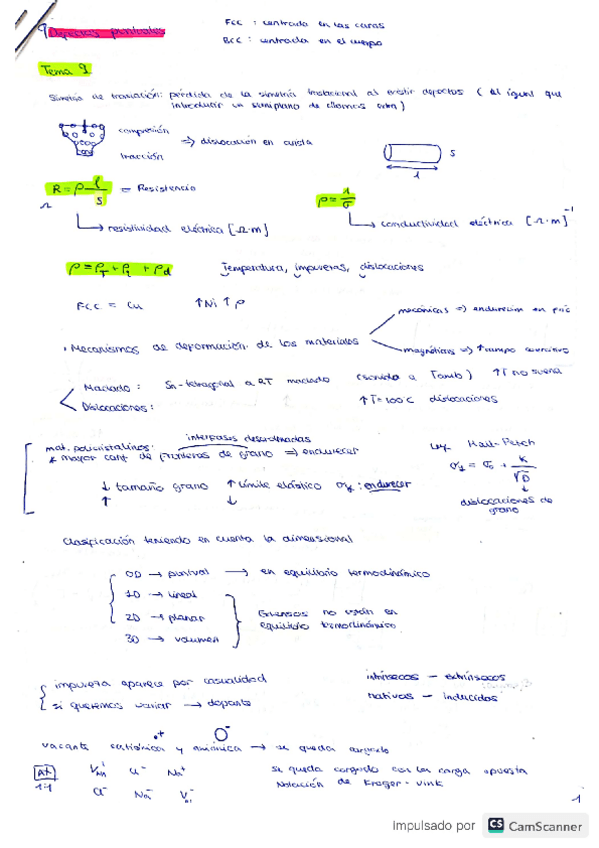 9 Defectos puntuales
FCC : centrada en las caras
BCC : centrada en el cuerpo
Tema 9
Simetría de traslación: pérdida de la simetría traslacional al existir defectos ( al igual que
introducir un semiplano de átomos extra)
compresión
tracción
=> dislocación en cuista
S
l
R = ρ l/S = Resistencia
Ω
ρ = 1/σ
resistividad eléctrica [Ω·m]
conductividad eléctrica [Ω·m]⁻¹
ρ = ρT + ρi + ρd Temperatura, impurezas, dislocaciones
FCC = Cu ↑Ni ↑ρ
mecánicas => endurecen en
• Mecanismos de deformación de los materiales
magnéticas => ↑campo coercitivo
Maclado : Sn-tetragonal a RT maclado (sonido a Tamb) ↑T no suena
Dislocaciones : ↑T=100°C dislocaciones
mat. policristalinos: interfases desordenadas
* mayor cant de fronteras de grano => endurecer
Ley Hall-Petch
σy = σ0 + K/√D
↓ tamaño grano ↑ límite elástico σy : endurecer
↑ ↓
dislocaciones de
grano
Clasificación teniendo en cuenta la dimensional
0D → puntual → en equilibrio termodinámico
1D → lineal
2D → planar
3D → volumen
no están en
equilibrio termodinámico
impureza aparece por casualidad
si queremos variar → dopante
intrínsecos – extrínsecos
nativos – inducidos
vacante catiónica y aniónica → se queda
se queda cargado con la carga opuesta
Notación de Kroger-Vink
1
Impulsado por CS CamScanner